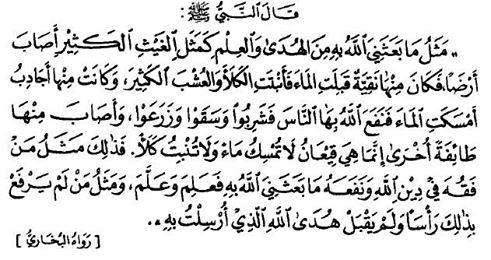 قَالَ النَّبِيُّ ﷺ :
« مَثَلُ مَا بَعَثَنِي اللَّهُ بِهِ مِنَ الْهُدَى وَالْعِلْمِ كَمَثَلِ الْغَيْثِ الْكَثِيرِ أَصَابَ
أَرْضًا، فَكَانَ مِنْهَا نَقِيَّةٌ قَبِلَتِ الْمَاءَ فَأَنْبَتَتِ الْكَلَأَ وَالْعُشْبَ الْكَثِيرَ، وَكَانَتْ مِنْهَا أَجَادِبُ
أَمْسَكَتِ الْمَاءَ فَنَفَعَ اللَّهُ بِهَا النَّاسَ فَشَرِبُوا وَسَقَوْا وَزَرَعُوا، وَأَصَابَ مِنْهَا
طَائِفَةً أُخْرَى إِنَّمَا هِيَ قِيعَانٌ لَا تُمْسِكُ مَاءً وَلَا تُنْبِتُ كَلَأً. فَذَلِكَ مَثَلُ مَنْ
فَقُهَ فِي دِينِ اللَّهِ وَنَفَعَهُ مَا بَعَثَنِيَ اللَّهُ بِهِ فَعَلِمَ وَعَلَّمَ، وَمَثَلُ مَنْ لَمْ يَرْفَعْ
بِذَلِكَ رَأْسًا وَلَمْ يَقْبَلْ هُدَى اللَّهِ الَّذِي أُرْسِلْتُ بِهِ ».
[ رَوَاهُ الْبُخَارِيُّ ]